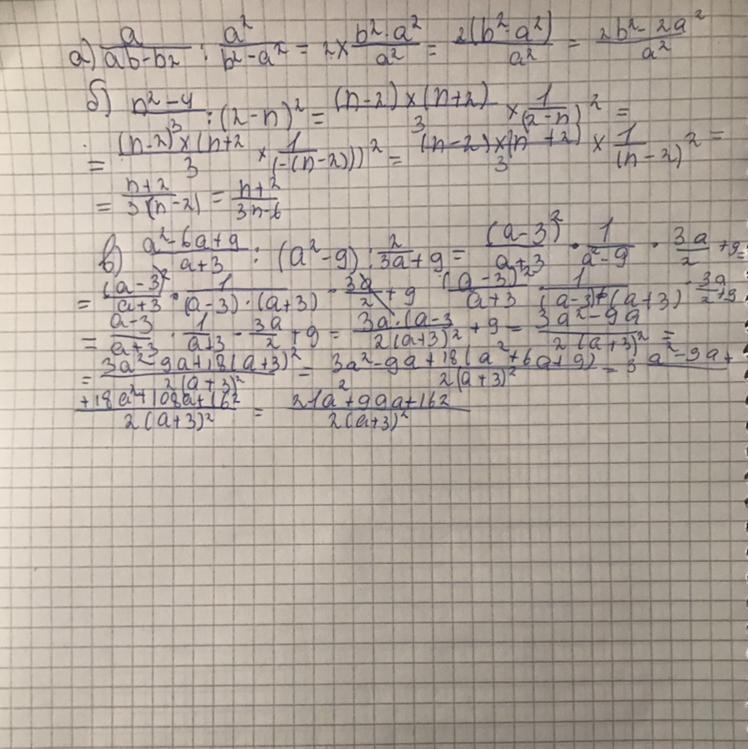 а) a/(ab-b2) : a²/(b²-a²) = 2 × (b²·a²)/a² = 2(b²·a²)/a² = (2b²-2a²)/a²
б) (n²-4)/3 : (2-n)² = ((n-2)×(n+2))/3 × 1/(2-n)² =
= ((n-2)×(n+2)/3 × 1/(-(n-2)))² = ((n-2)×(n+2))/3 × 1/(n-2)² =
= (n+2)/(3(n-2)) = (n+2)/(3n-6)
в) (a²-6a+9)/(a+3) : (a²-9) : 2/(3a+9) = (a-3)²/(a+3) · 1/(a²-9) · 3a/2 +9=
= (a-3)²/(a+3) · 1/((a-3)·(a+3)) · 3a/2 + 9 (a-3)²/(a+3) · 1/((a-3)·(a+3)) · 3a/2 +9
= (a-3)/(a+3) · 1/(a+3) · 3a/2 + 9 = (3a·(a-3)/(2(a+3)² + 9 = (3a²-9a)/(2(a+3)²) =
= (3a²-9a+18(a+3)²)/(2(a+3)²) = (3a²-9a+18(a²+6a+9))/(2(a+3)²) = 3a²-9a+
(+18a²+108a+162)/(2(a+3)²) = (21a²+99a+162)/(2(a+3)²)